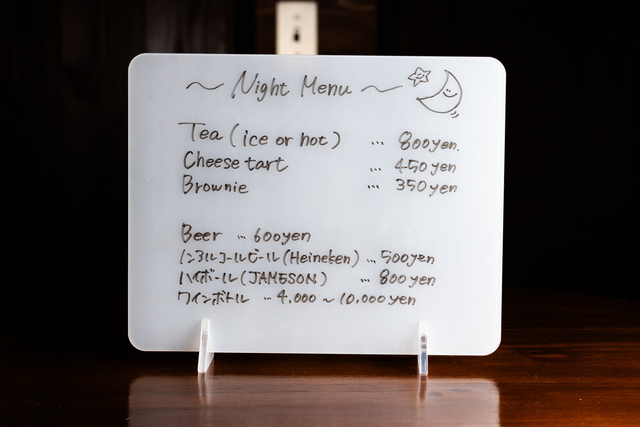 ～ Night Menu ～
Tea (ice or hot) ... 800yen.
Cheese tart ... 450yen
Brownie ... 350yen
Beer ... 600yen
ノンアルコールビール(Heineken) ... 500yen
ハイボール(JAMESON) ... 800yen
ワインボトル ... 4,000 ~ 10,000yen